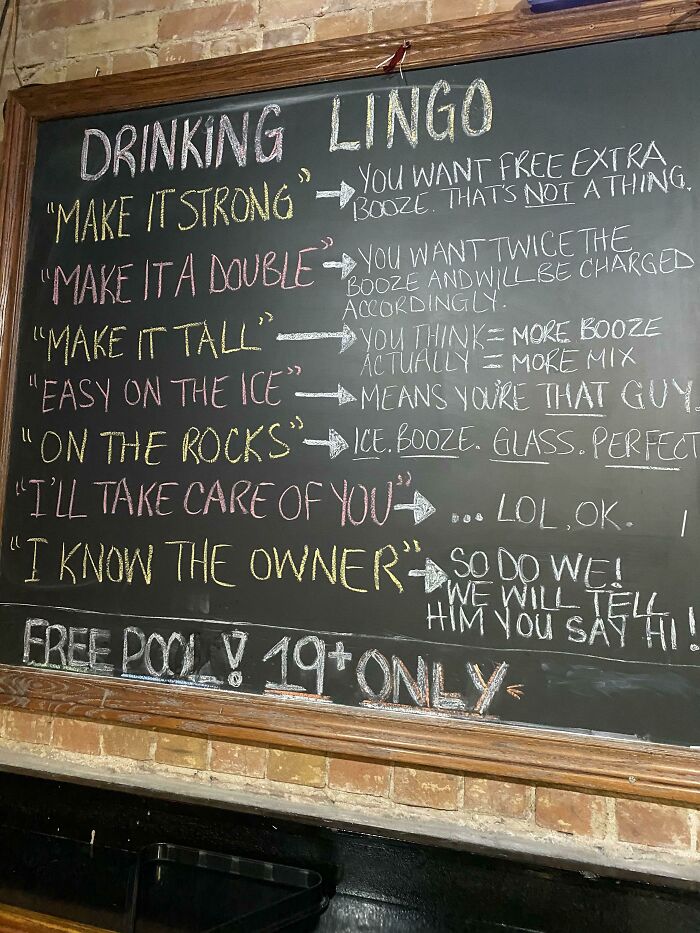 DRINKING LINGO
"MAKE IT STRONG" → YOU WANT FREE EXTRA
BOOZE. THAT'S NOT A THING.
"MAKE IT A DOUBLE" → YOU WANT TWICE THE
BOOZE AND WILL BE CHARGED
ACCORDINGLY.
"MAKE IT TALL" → YOU THINK = MORE BOOZE
ACTUALLY = MORE MIX
"EASY ON THE ICE" → MEANS YOU'RE THAT GUY
"ON THE ROCKS" → ICE. BOOZE. GLASS. PERFECT
"I'LL TAKE CARE OF YOU" → ... LOL, OK.
"I KNOW THE OWNER" → SO DO WE!
WE WILL TELL
HIM YOU SAY HI!
FREE POOL! 19+ ONLY